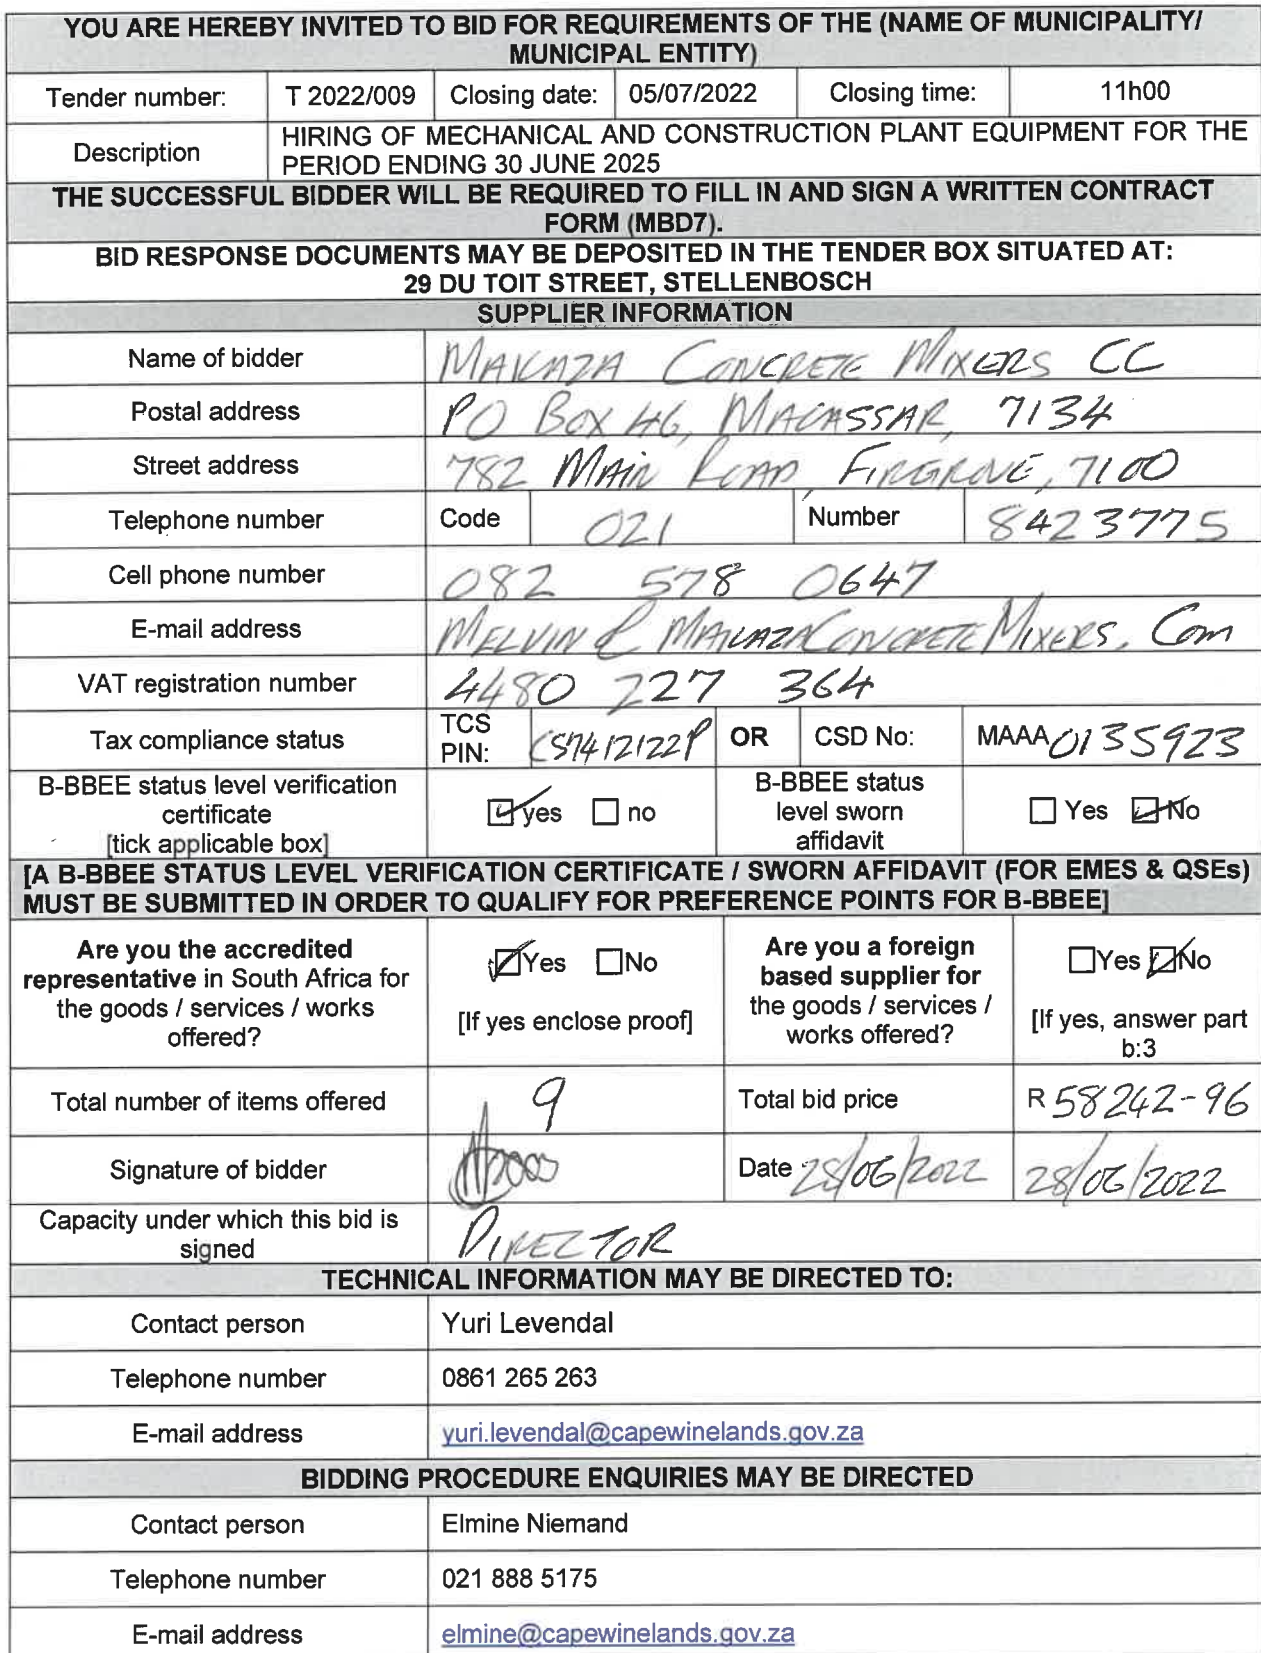 YOU ARE HEREBY INVITED TO BID FOR REQUIREMENTS OF THE (NAME OF MUNICIPALITY/
MUNICIPAL ENTITY)
Tender number: T 2022/009 Closing date: 05/07/2022 Closing time: 11h00
Description HIRING OF MECHANICAL AND CONSTRUCTION PLANT EQUIPMENT FOR THE
PERIOD ENDING 30 JUNE 2025
THE SUCCESSFUL BIDDER WILL BE REQUIRED TO FILL IN AND SIGN A WRITTEN CONTRACT
FORM (MBD7).
BID RESPONSE DOCUMENTS MAY BE DEPOSITED IN THE TENDER BOX SITUATED AT:
29 DU TOIT STREET, STELLENBOSCH
SUPPLIER INFORMATION
Name of bidder MAKAZA CONCRETE MIXERS CC
Postal address PO BOX 46, MACASSAR, 7134
Street address 782 MAIN ROAD, FIRGROVE, 7100
Telephone number Code 021 Number 8423775
Cell phone number 082 578 0647
E-mail address MELVIN @ MAKAZACONCRETEMIXERS.Com
VAT registration number 4480 227 364
Tax compliance status TCS
PIN: OR CSD No: MAAA 0135923
B-BBEE status level verification
certificate
[tick applicable box]
yes no
B-BBEE status
level sworn
affidavit
Yes No
[A B-BBEE STATUS LEVEL VERIFICATION CERTIFICATE / SWORN AFFIDAVIT (FOR EMES & QSEs)
MUST BE SUBMITTED IN ORDER TO QUALIFY FOR PREFERENCE POINTS FOR B-BBEE]
Are you the accredited
representative in South Africa for
the goods / services / works
offered?
Yes No
[If yes enclose proof]
Are you a foreign
based supplier for
the goods / services /
works offered?
Yes No
[If yes, answer part
b:3
Total number of items offered 9 Total bid price R 58242-96
Signature of bidder Date 28/06/2022 28/06/2022
Capacity under which this bid is
signed
DIRECTOR
TECHNICAL INFORMATION MAY BE DIRECTED TO:
Contact person Yuri Levendal
Telephone number 0861 265 263
E-mail address yuri.levendal@capewinelands.gov.za
BIDDING PROCEDURE ENQUIRIES MAY BE DIRECTED
Contact person Elmine Niemand
Telephone number 021 888 5175
E-mail address elmine@capewinelands.gov.za